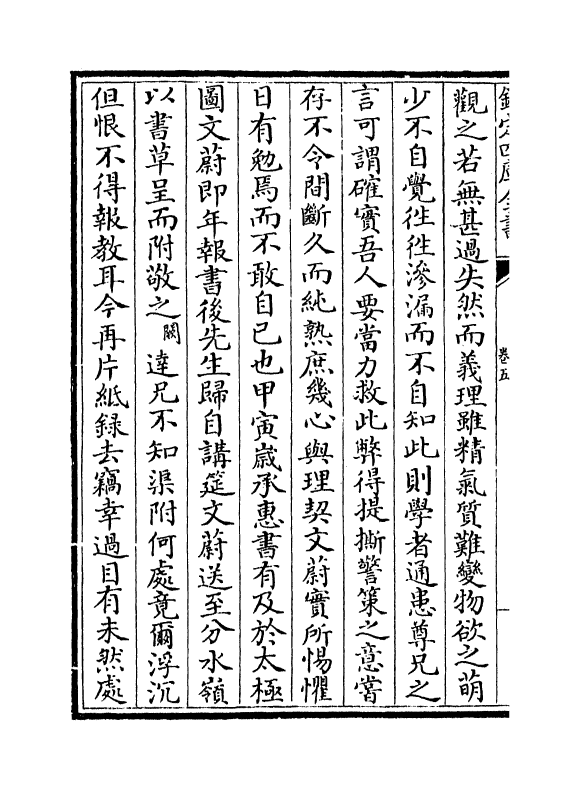 欽定四庫全書
卷五
觀之若無甚過失然而義理雖精氣質難變物欲之萌
少不自覺徃徃滲漏而不自知此則學者通患尊兄之
言可謂確實吾人要當力救此弊得提撕警䇿之意嘗
存不令間斷久而純熟庶幾心與理契文蔚實所惕懼
日有勉焉而不敢自已也甲寅嵗承惠書有及於太極
圖文蔚即年報書後先生歸自講筵文蔚送至分水嶺
以書草呈而附敬之闕達兄不知渠附何處竟爾浮沉
但恨不得報教耳今再片紙録去竊幸過目有未然處